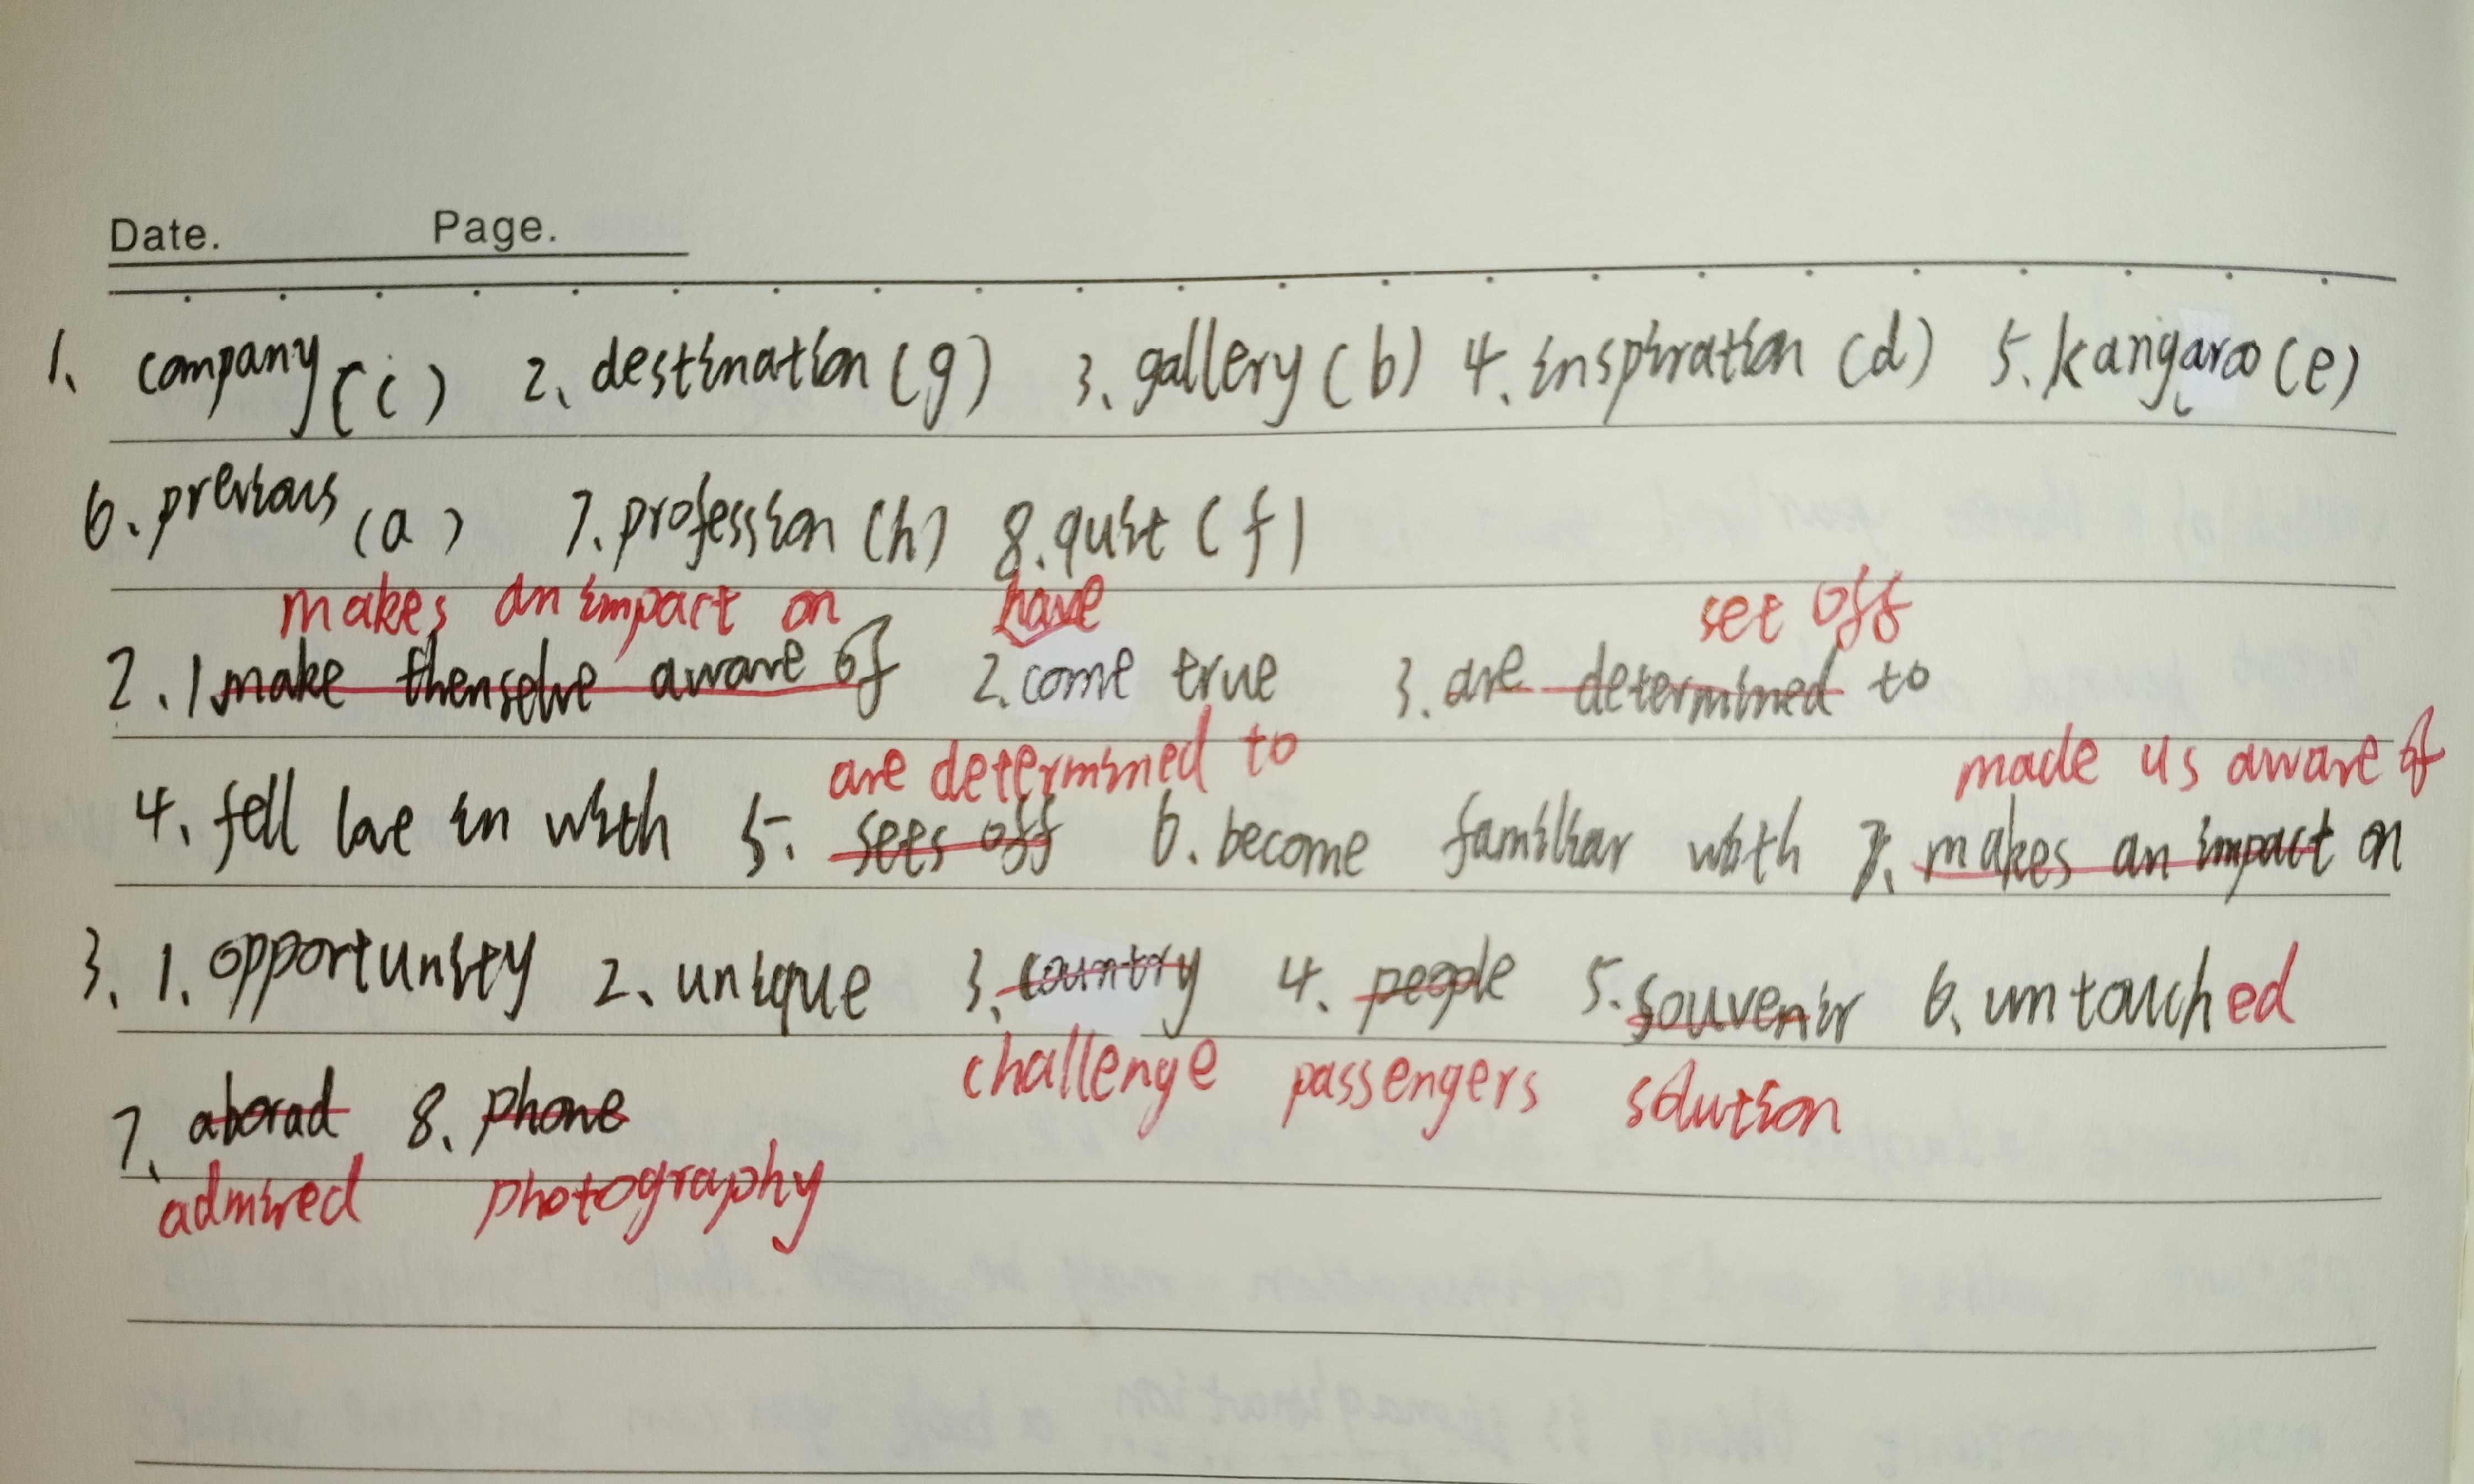 Date. Page.
1. company (i) 2. destination (g) 3. gallery (b) 4. inspiration (d) 5. kangaroo (e)
6. previous (a) 7. profession (h) 8. quit (f)
makes an impact on have set off
2. 1. make themselve aware of 2. come true 3. are determined to
are determined to made us aware of
4. fell love in with 5. sets off 6. become familiar with 7. makes an impact on
3. 1. opportunity 2. unique 3. country 4. people 5. souvenir 6. untouched
challenge passengers solution
7. aborad 8. phone
admired photography